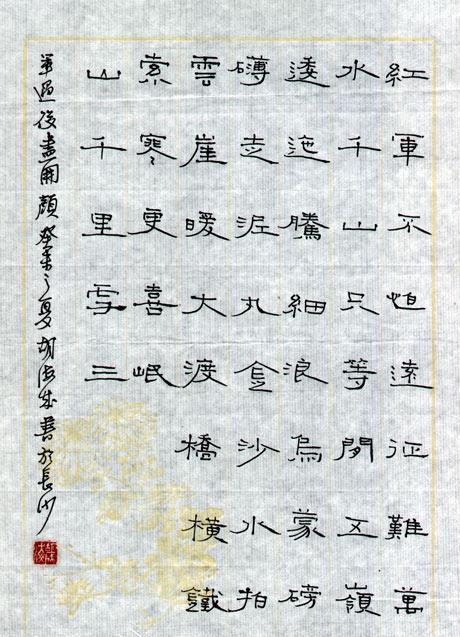 紅軍不怕遠征難萬
水千山只等閒五嶺
逶迤騰細浪烏蒙磅
礴走泥丸金沙水拍
雲崖暖大渡橋橫鐵
索寒更喜岷
山千里雪三
軍過後盡開顏 癸未之夏 書於長沙